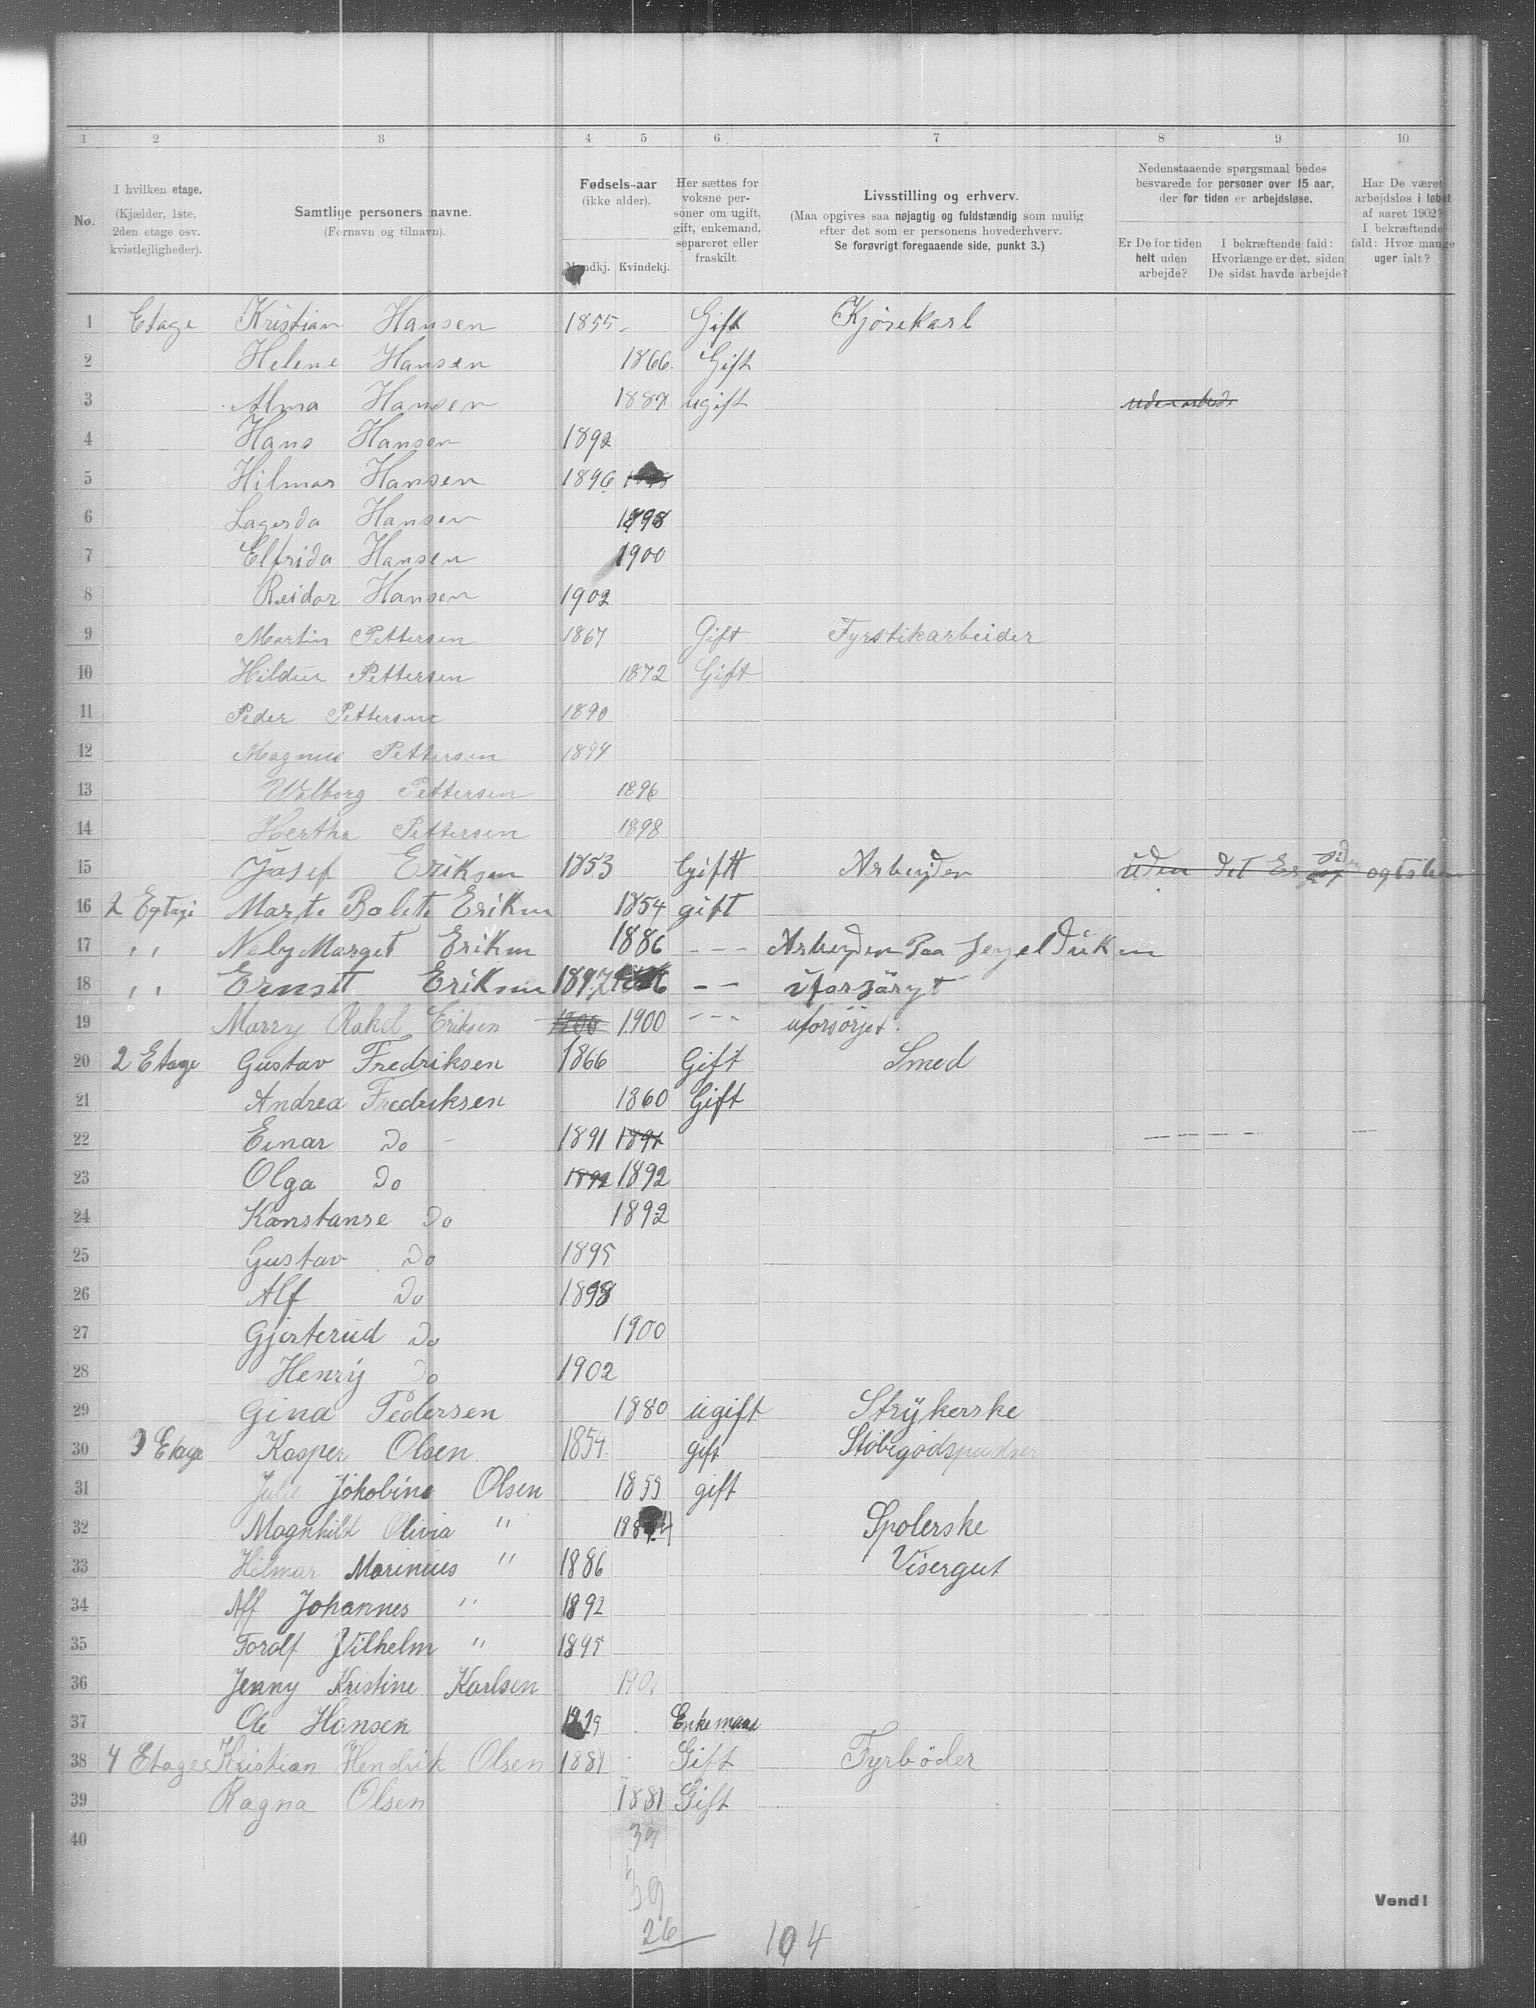 1 2 3 4 5 6 7 8 9 10
No.
I hvilken etage.
(Kjælder, 1ste,
2den etage osv.
kvistlejligheder).
Samtlige personers navne.
(Fornavn og tilnavn).
Fødsels-aar
(ikke alder).
Mandkj. Kvindekj.
Her sættes for
voksne per-
soner om ugift,
gift, enkemand,
separeret eller
fraskilt.
Livsstilling og erhverv.
(Maa opgives saa nøjagtig og fuldstændig som mulig
efter det som er personens hovederhverv.
Se forøvrigt foregaaende side, punkt 3.)
Nedenstaaende spørgsmaal bedes
besvarede for personer over 15 aar,
der for tiden er arbejdsløse.
Er De for tiden
helt uden
arbejde?
I bekræftende fald:
Hvorlænge er det, siden
De sidst havde arbejde?
Har De været
arbejdsløs i løbet
af aaret 1902?
I bekræftende
fald: Hvor mange
uger ialt?
1 Etage Kristian Hansen 1855 Gift Kjørekarl
2 Helene Hansen 1866 Gift
3 Alma Hansen 1887 ugift uden arbeide
4 Hans Hansen 1892
5 Hilmar Hansen 1896
6 Lagerda Hansen 1898
7 Elfrida Hansen 1900
8 Reidar Hansen 1902
9 Martin Pettersen 1867 Gift Fyrstikarbeider
10 Hildur Pettersen 1872 Gift
11 Peder Pettersen 1890
12 Magnus Pettersen 1894
13 Walborg Pettersen 1896
14 Hertha Pettersen 1898
15 Josef Eriksen 1853 Gift Arbeyder uden det Er
16 2 Egtage Marte Bolete Eriksn 1854 gift
17 ,, Neby Marget Eriksn 1886 --- Arbeyder Paa Seyelduken
18 ,, Ernst Eriksen 1897 -- uforsöryt
19 Marry Rakel Eriksen 1900 1900 --- uforsörjet.
20 2 Etage Gustav Fredriksen 1866 Gift Smed
21 Andrea Fredriksen 1860 Gift
22 Einar Do - 1891 1891
23 Olga Do 1892 1892
24 Konstanse Do 1892
25 Gustav Do 1895
26 Alf Do 1898
27 Gjerterud Do 1900
28 Henry Do 1902
29 Gina Pedersen 1880 ugift Strykerske
30 3 Etage Kasper Olsen 1854 gift Støbegodspudser
31 Julie Jokobine Olsen 1855 gift
32 Magnhild Olivia " Spolerske
33 Hilmar Marinius " 1886 Visergut
34 Alf Johannes " 1892
35 Torolf Vilhelm " 1895
36 Jenny Kristine Karlsen 190
37 Ole Hansen Enkemand
38 4 Etage Kristian Hendrik Olsen 1881 Gift Fyrbøder
39 Ragna Olsen 1881 Gift
40 39
39
26
104
Vend!